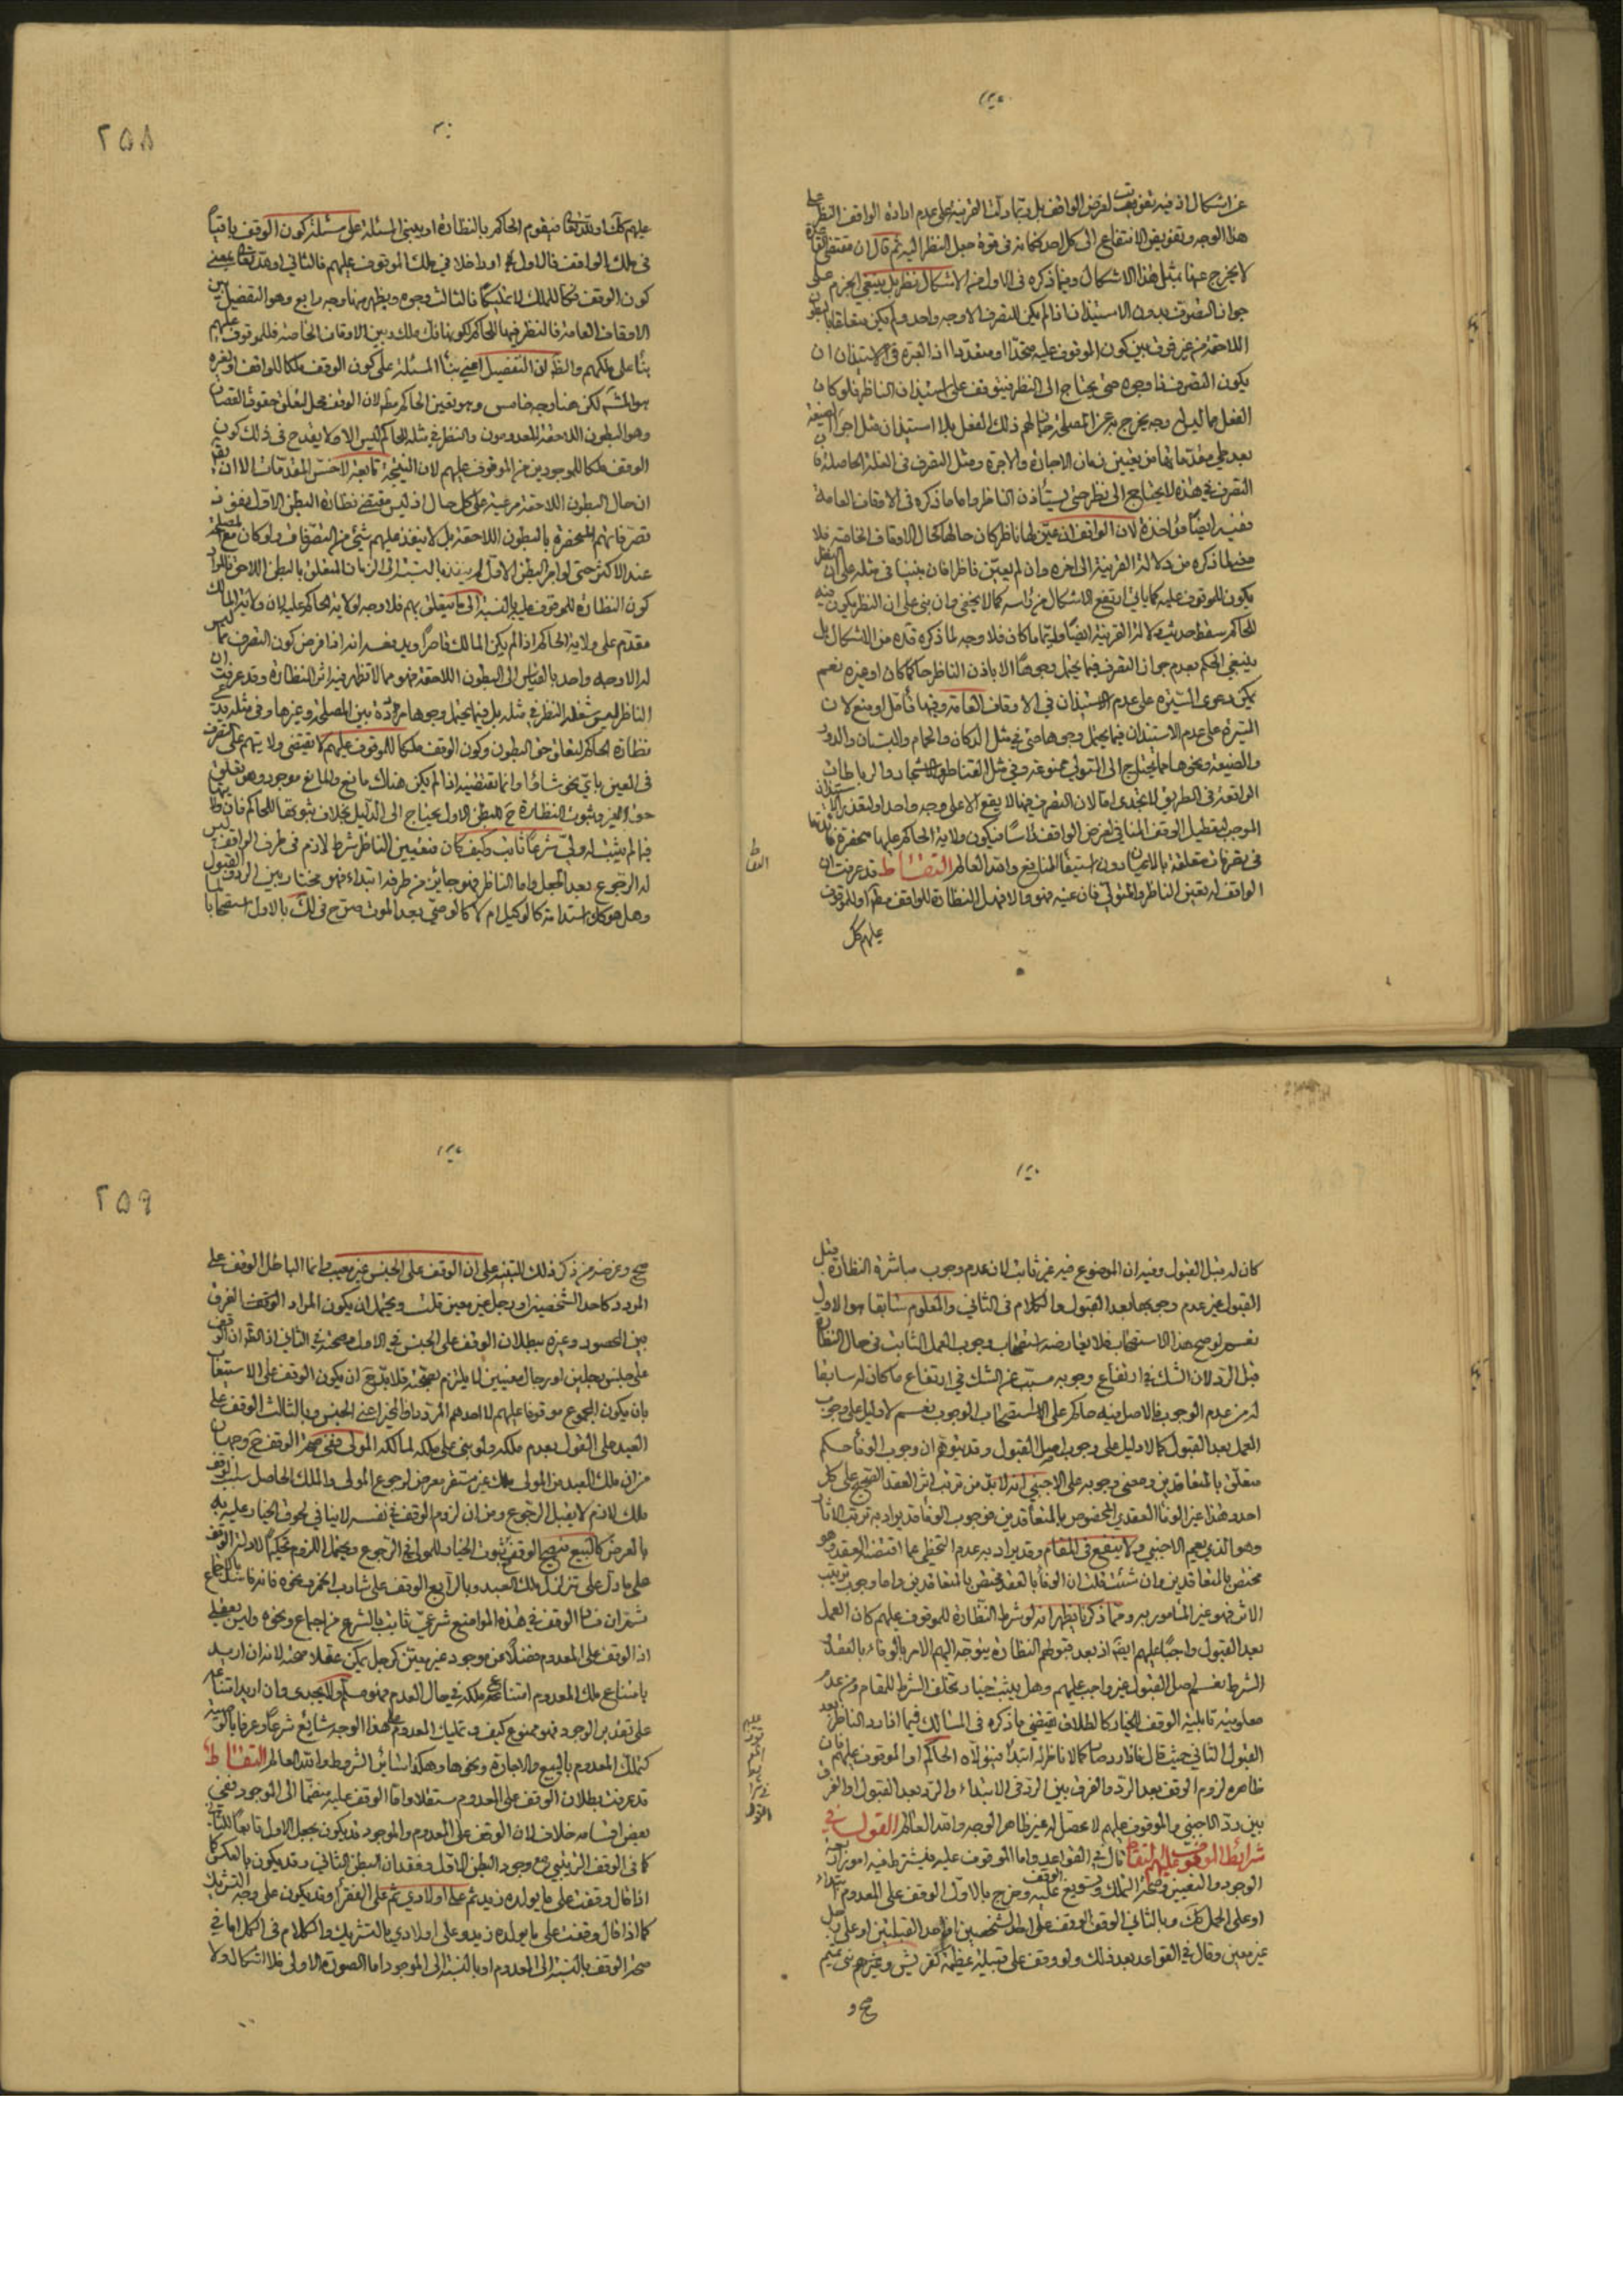 عن اشكال اذ فيه تفويت لغرض الواقف بل ربما دلت القرينة على عدم ارادة الواقف النظر على
هذا الوجه وتفويض الانتفاع الى كل احد فكانه في قوة جعل النظر اليه ثم قال ان مقتضى القاعدة
لا يخرج عنها بمثل هذا الاشكال وفيما ذكره في الاول من الاشكال نظر بل ينبغي الجزم على
جواز التصرف بدون الاستيذان اذا لم يكن للتصرف الا وجه واحد ولم يكن متعلقا بالبطون
اللاحقة من غير فرق بين كون الموقوف عليه متحدا او متعددا اذ العبرة في الاستيذان ان
يكون التصرف ذا وجوه حتى يحتاج الى النظر فيتوقف على استيذان الناظر فلو كان
الفعل مما ليس له وجه يخرج به عن المصلحة جاز لهم ذلك الفعل بلا استيذان مثل اجراء الصيغة
بعد طي مقدماتها من تعيين زمان الاجارة والاجرة ومثل التصرف في الغلة الحاصلة فان
التصرف في هذه لا يحتاج الى نظر حتى يستأذن الناظر واما ما ذكره في الاوقاف العامة
ففيه ايضا مؤاخذة لان الواقف ان عين لها ناظر كان حالها كحال الاوقاف الخاصة فلا
معنى لما ذكره من دلالة القرينة الى اخره وان لم يعين ناظرا فان بنينا في مثله على ان النظر
يكون للموقوف عليه كما ياتي ارتفع الاشكال من راسه كما لا يخفى وان بنى على ان النظر يكون فيه
للحاكم سقط حديث دلالة القرينة ايضا وايا ما كان فلا وجه لما ذكره قده من الاشكال بل
ينبغي الحكم بعدم جواز التصرف فيما يحتمل وجوها الا باذن الناظر حاكما كان او غيره نعم
يمكن دعوى السيرة على عدم الاستيذان في الاوقاف العامة وفيها تأمل او منع لان
السيرة على عدم الاستيذان فيما يحتمل وجوها حتى في مثل الدكان والحمام والبستان والدور
والضيعة ونحوها مما يحتاج الى المتولي ممنوعة وفي مثل القناطر والاشجار والرباطات
الواقعة في الطريق لا تجدى اما لان التصرف فيها لا يقع الا على وجه واحد او لتعذر الاستيذان
الموجب لتعطيل الوقف المنافي لغرض الواقف راسا فيكون ولاية الحاكم عليها منحصرة
في تصرفات متعلقة بالاعيان دون استيفاء المنافع والله العالم التقاط قد عرفت ان
الواقف له تعيين الناظر والمتولي فان عينه فهو والا فهل النظارة للواقف مط او للموقوف
عليهم كك
٢٥٨
عليهم كك او لله تعالى فيقوم الحاكم بالنظارة او يبنى المسئلة على مسئلة كون الوقف باقيا
في ملك الواقف فالاول او داخلا في ملك الموقوف عليهم فالثاني او لله تعالى بمعنى
كون الوقف فكا للملك لا تمليكا فالثالث وجوه ويظهر منها وجه رابع وهو التفصيل بين
الاوقاف العامة فالنظر فيها للحاكم لكونها فك ملك وبين الاوقاف الخاصة فللموقوف عليهم
بناء على ملكهم والظ ان التفصيل اعني بناء المسئلة على كون الوقف ملكا للواقف او لغيره
هو المشهور لكن هنا وجه خامس وهو تعين الحاكم مط لان الوقف محل لتعلق حقوق القصار
وهو البطون اللاحقة المعدومون والنظر في مثله للحاكم ليس الا ولا يقدح في ذلك كون
الوقف ملكا للموجودين من الموقوف عليهم لان النتيجة تابعة لاخس المقدمات الا ان يقال
ان حال البطون اللاحقة مرعية على كل حال اذ ليس مقتضى نظارة البطن الاول نفوذ
تصرفاتهم المحضرة بالبطون اللاحقة بل لا ينفذ عليهم شيء من التصرفات ولو كان مع المصلحة
عند الاكثر حتى لو اجر البطن الاول لم ينفذ بالنسبة الى الزمان المتعلق بالبطن اللاحق فالمراد
كون النظارة للموقوف عليه بالنسبة الى ما يتعلق بهم فلا وجه لولاية الحاكم عليه لان ولاية المالك
مقدم على ولاية الحاكم اذا لم يكن المالك قاصرا ويدفعه انه اذا فرض كون التصرف مما ليس
له الا وجه واحد بالقياس الى البطون اللاحقة فهو مما لا تظهر فيه اثر النظارة وقد عرفت ان
الناظر ليس شغله النظر في مثله بل فيما يحتمل وجوها مرددة بين المصلحة وغيرها وفي مثله يدعى
نظارة الحاكم لتعلق حق البطون وكون الوقف ملكا للموقوف عليهم لا يقتضى ولا يتهم على التصرف
في العين باي نحو شاؤا وانما تقتضيه اذا لم يكن هناك مانع والمانع موجود وهو تعلق
حق الغير وثبوت النظارة ح للبطن الاول يحتاج الى الدليل بخلاف ثبوتها للحاكم فان ولايته
فيما لم يثبت له ولي شرعا ثابت وكيف كان فتعيين الناظر شرط لازم في طرف الواقف ليس
له الرجوع بعد الجعل واما الناظر فهو جايز من طرفه ابتداء فهو مختار بين الرد والقبول
وهل هو كك استدامة كالوكيل ام لا كالوصي بعد الموت صرح في لك بالاول استصحابا لما
كان له قبل القبول وفيه ان الموضوع فيه غير ثابت لان عدم وجوب مباشرة النظارة قبل
القبول غير عدم وجوبها بعد القبول والكلام في الثاني والمعلوم سابقا هو الاول
نعم لو صح هذا الاستصحاب فلا يعارضه استصحاب وجوب العمل الثابت في حال النظارة
قبل الرد لان الشك في ارتفاع وجوبه مسبب عن الشك في ارتفاع ما كان له سابقا
له من عدم الوجوب فالاصل فيه حاكم على الاستصحاب الوجوب نعم لا دليل على وجوب
العمل بعد القبول كما لا دليل على وجوب اصل القبول وقد يتوهم ان وجوب الوفاء حكم
متعلق بالمتعاقدين ومعنى وجوبه على الاجنبي انه لا بد من ترتب اثر العقد الصحيح على كل
احد وهذا غير الوفاء العقدي المخصوص بالمتعاقدين فوجوب الوفاء قد يراد به ترتب الاثار
وهو الذي يعم الاجنبي ولا ينفع في المقام وقد يراد به عدم التخطي عما اقتضاه العقد وهو
مختص بالمتعاقدين وان شئت قلت ان الوفاء بالعقد مختص بالمتعاقدين واما وجوب ترتيب
الاثر فهو غير المأمور به ومما ذكرنا يظهر انه لو شرط النظارة للموقوف عليهم كان العمل
بعد القبول واجبا عليهم ايضا اذ بعد قبولهم النظارة يتوجه اليهم الامر بالوفاء بالعقد
الشرط نعم اصل القبول غير واجب عليهم وهل يثبت خيار تخلف الشرط للمقام وعدم
معلومية قابلية الوقف للخيار كالطلاق يقتضي ما ذكره في المسالك فيما اذا رد الناظر بعد
القبول الثاني حيث قال فاذا رد صار كما لا ناظر له ابتداء فيتولاه الحاكم او الموقوف عليهم فان
ظاهره لزوم الوقف بعد الرد والفرق بين الرد في الابتداء والرد بعد القبول او الفرق
بين رد الاجنبي والموقوف عليهم لا محصل له غير ظاهر الوجه والله العالم القول في
شرائط الموقوف عليهم التقاط قال في القواعد واما الموقوف عليه فيشترط فيه امور اربعة
الوجود والتعيين وصحة التملك وتسويغ الوقف عليه وخرج بالاول الوقف على المعدوم ابتداء
او على الحمل كك وبالثاني الوقف الوقف على احد الشخصين او احد القبيلتين او على رجل
غير معين وقال في القواعد بعد ذلك ولو وقف على قبيلة عظيمة كقريش وغيرهم بنى تميم
صح و
٢٥٩
صح وغرضه من ذكر ذلك للتنبيه على ان الوقف على الجنس غير معيب وانما الباطل الوقف على
المردد كاحد الشخصين او رجل غير معين قلت ويحتمل ان يكون المراد الفرق
بين المحصور وغيره ببطلان الوقف على الجنس في الاول وصحته في الثاني اذ الظ ان الوقف
على جنس رجلين او رجال معينين لا يلتزم بصحته فلا بد ح ان يكون الوقف على الاستيعاب
بان يكون المجموع موقوفا عليهم لا احدهم المردد اعني الجنس وبالثالث الوقف على
العبد على القول بعدم ملكه ولو بنى على ملكه لما ملكه المولى ففي صحة الوقف ح وجهان
من ان ملك العبد من المولى ملك غير مستقر معرض لرجوع المولى والملك الحاصل بسبب الوقف
ملك لازم لا يقبل الرجوع ومن ان لزوم الوقف في نفسه لا ينافي لحوق الخيار عليه به
بالعرض كالبيع فيصح الوقف بثبوت الخيار للمولى في الرجوع ويحتمل اللزوم تحكيما لادلة الوقف
على ما دل على تزلزل ملك العبد وبالرابع الوقف على شارب الخمر ونحوه فانه فاسد بالاجماع
ثم ان فساد الوقف في هذه المواضع شرعي ثابت بالشرع من اجماع ونحوه وليس بعقلي
اذ الوقف على المعدوم فضلا عن موجود غير معين كرجل يمكن عقلا صحته لانه ان اريد
بامتناع ملك المعدوم امتناع ملكه في حال العدم فهو مسلم ولا يجدى وان اريد امتناعه
على تقدير الوجود فهو ممنوع كيف وتمليك المعدوم على هذا الوجه شائع شرعا وعرفا بالوصية
كتملك المعدوم بالبيع والاجارة ونحوها وهكذا سائر الشروط والله العالم التقاط
قد عرفت بطلان الوقف على المعدوم مستقلا واما الوقف عليه منضما الى الموجود ففي
بعض اقسامه خلاف لان الوقف على المعدوم والموجود قد يكون بجعل الاول تابعا للثاني
كما في الوقف الترتيبي مع وجود البطن الاول وفقدان البطن الثاني وقد يكون بالعكس كما
اذا قال وقفت على ما يولده زيد ثم على اولادي ثم على الفقراء وقد يكون على وجه التشريك
كما اذا قال وقفت على ما يولده زيد وعلى اولادي بالتشريك والكلام في الكل اما في
صحة الوقف بالنسبة الى المعدوم او بالنسبة الى الموجود اما الصورة الاولى فلا اشكال ولا